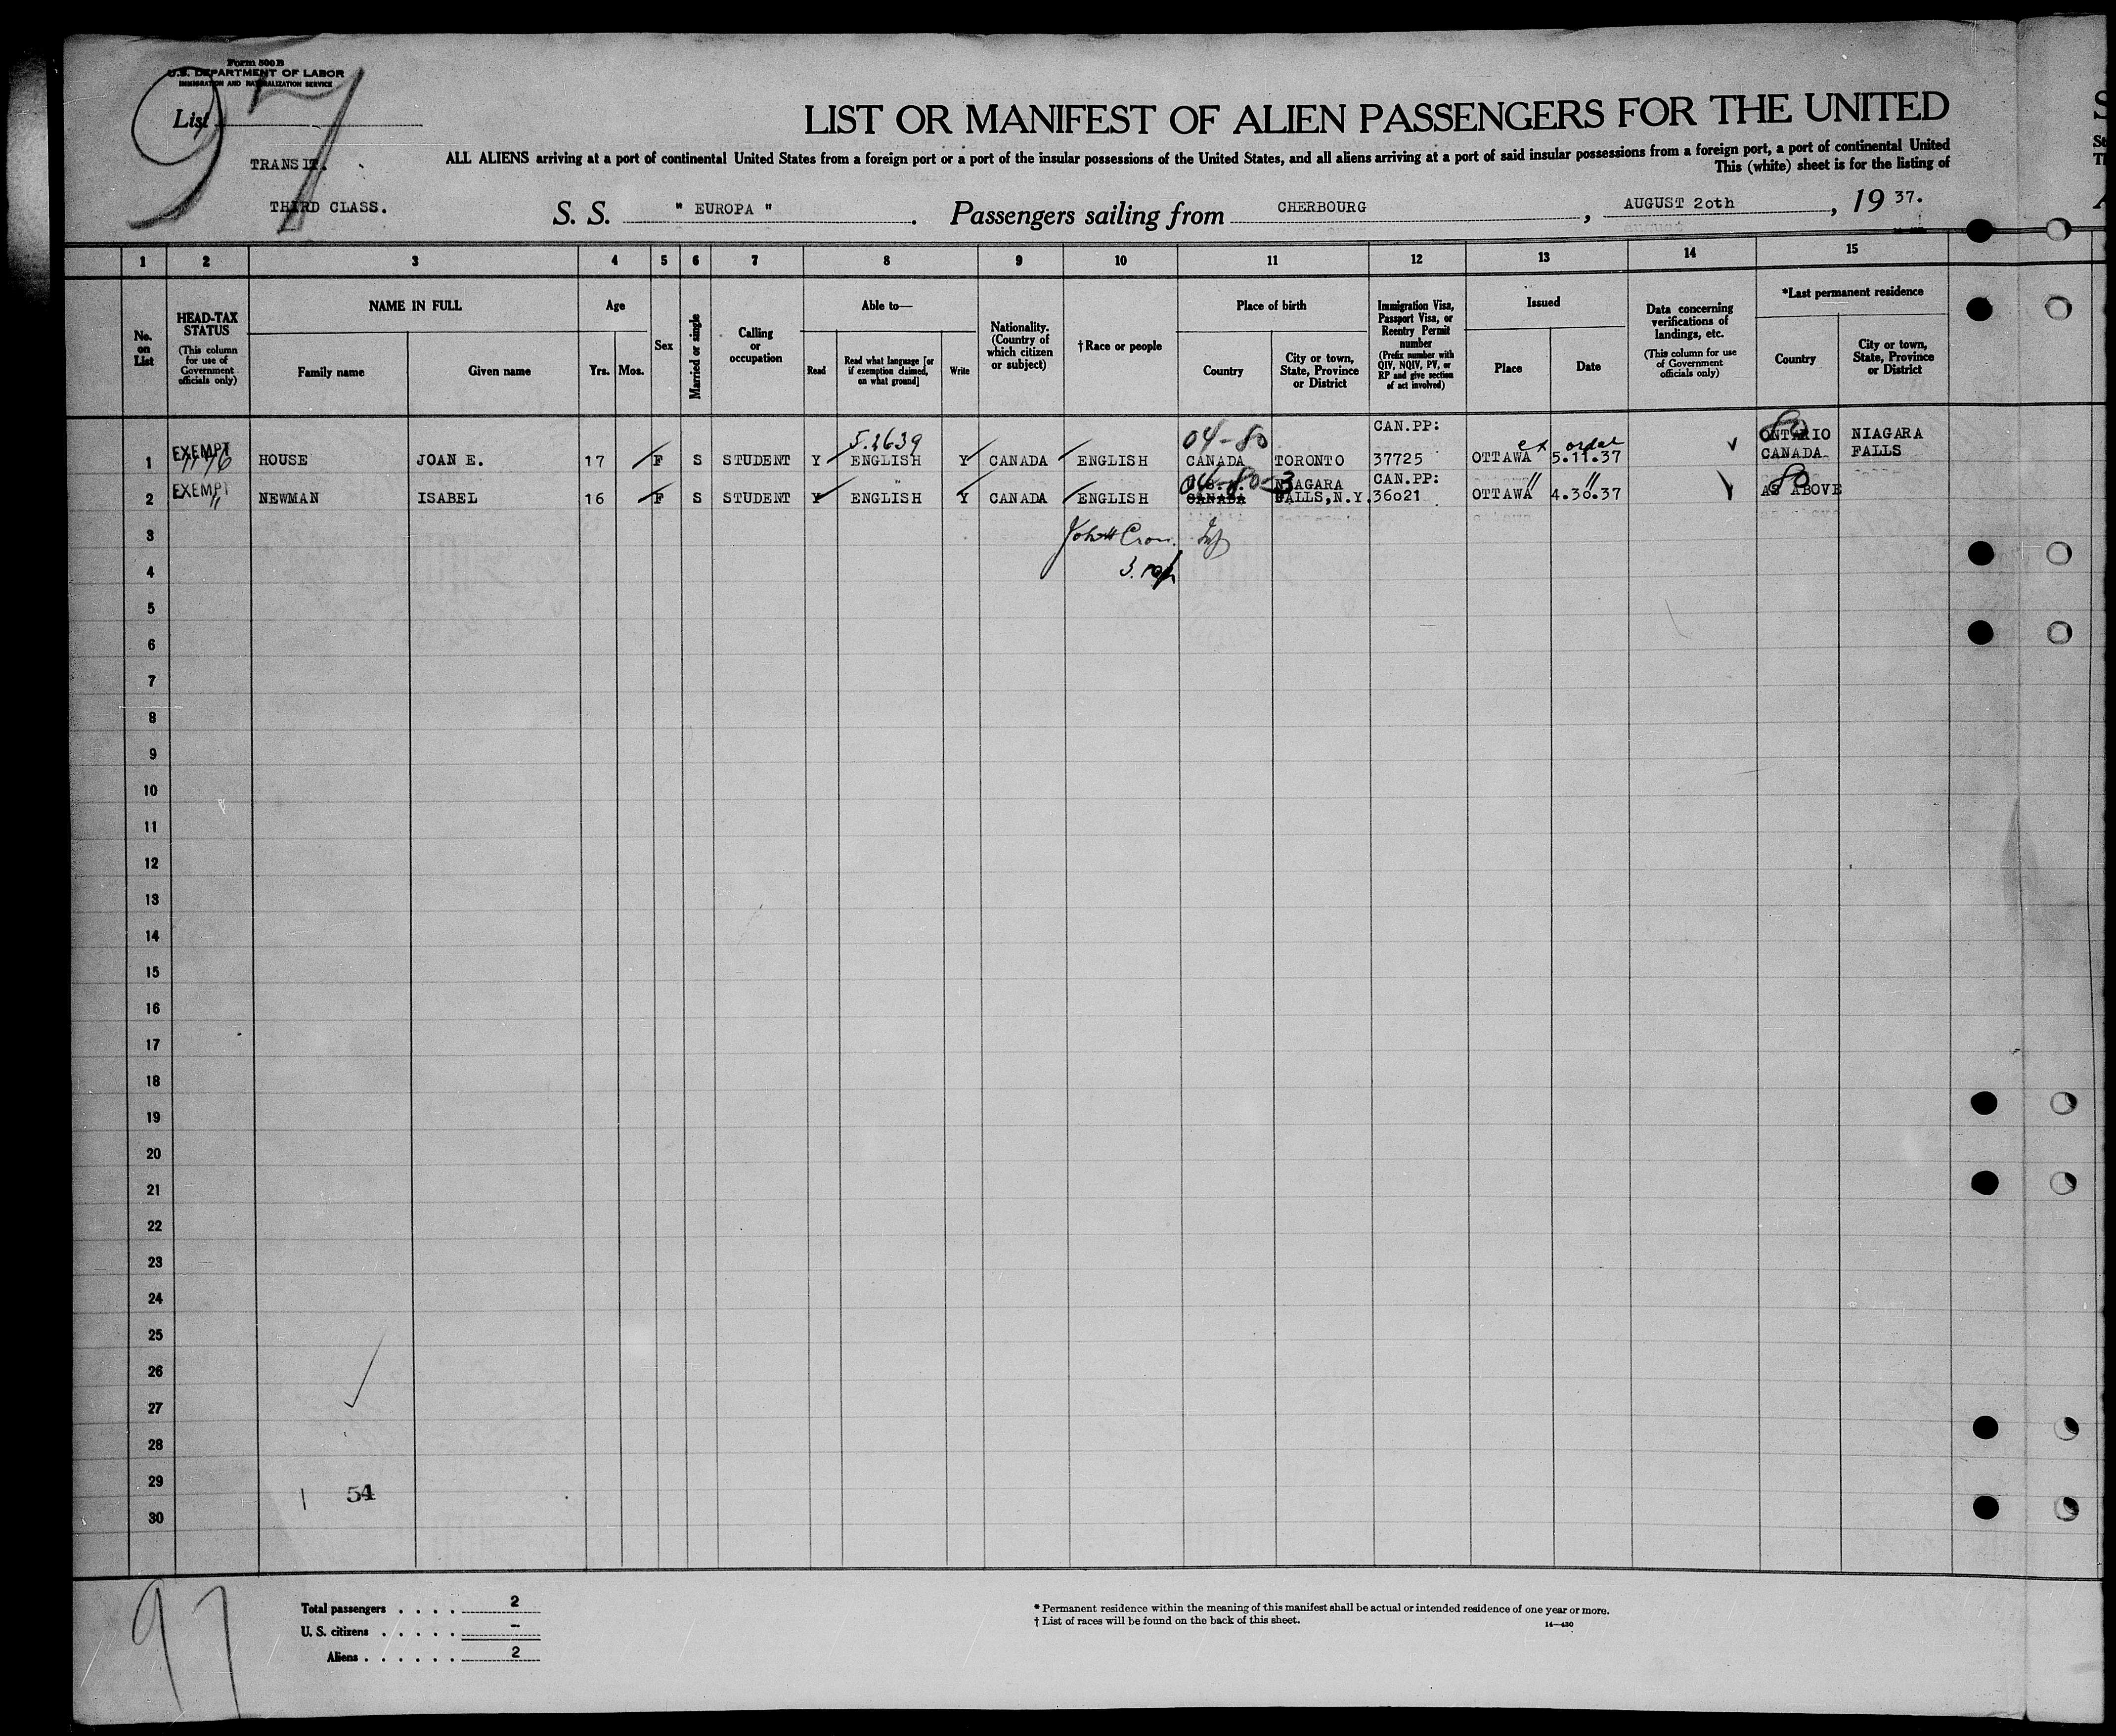 Form 500 B
U.S. DEPARTMENT OF LABOR
IMMIGRATION AND NATURALIZATION SERVICE
List 97
TRANSIT.
THIRD CLASS.
LIST OR MANIFEST OF ALIEN PASSENGERS FOR THE UNITED
ALL ALIENS arriving at a port of continental United States from a foreign port or a port of the insular possessions of the United States, and all aliens arriving at a port of said insular possessions from a foreign port, a port of continental United
This (white) sheet is for the listing of
S. S. " EUROPA ". Passengers sailing from CHERBOURG, AUGUST 2oth, 19 37.
1 2 3 4 5 6 7 8 9 10 11 12 13 14 15
No. on List
HEAD-TAX STATUS (This column for use of Government officials only)
NAME IN FULL
Family name Given name
Age
Yrs. Mos.
Sex
Married or single
Calling or occupation
Able to—
Read Read what language [or if exemption claimed, on what ground] Write
Nationality. (Country of which citizen or subject)
†Race or people
Place of birth
Country City or town, State, Province or District
Immigration Visa, Passport Visa, or Reentry Permit number (Prefix number with QIV, NQIV, PV, or RP and give section of act involved)
Issued
Place Date
Data concerning verifications of landings, etc. (This column for use of Government officials only)
*Last permanent residence
Country City or town, State, Province or District
5.2639 04-80 CAN.PP: ex order 80 ONTARIO NIAGARA
1 EXEMPT HOUSE JOAN E. 17 F S STUDENT Y ENGLISH Y CANADA ENGLISH CANADA TORONTO 37725 OTTAWA 5.11.37 CANADA FALLS
04-80-3 NIAGARA CAN.PP: 80
2 EXEMPT " NEWMAN ISABEL 16 F S STUDENT Y ENGLISH Y CANADA ENGLISH CANADA FALLS, N.Y. 36o21 OTTAWA " 4.3o.37 " AS ABOVE
3 John H Cron
4
5
6
7
8
9
10
11
12
13
14
15
16
17
18
19
20
21
22
23
24
25
26
27
28
29 54
30
97
Total passengers . . . . 2
U. S. citizens . . . . . -
Aliens . . . . . . 2
* Permanent residence within the meaning of this manifest shall be actual or intended residence of one year or more.
† List of races will be found on the back of this sheet.
14—430